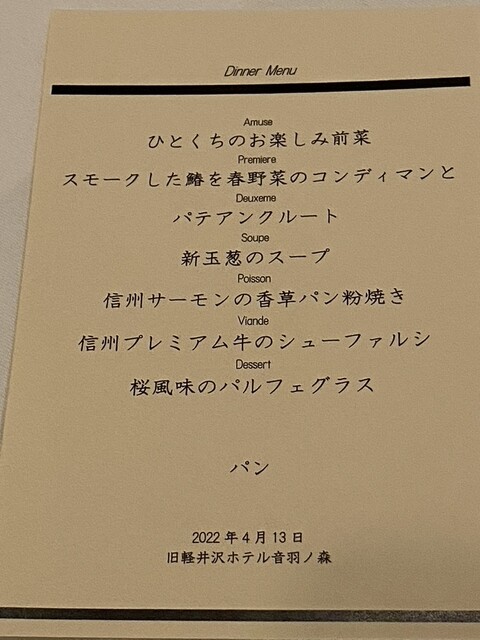 Dinner Menu
Amuse
ひとくちのお楽しみ前菜
Premiere
スモークした鰆を春野菜のコンディマンと
Deuxeme
パテアンクルート
Soupe
新玉葱のスープ
Poisson
信州サーモンの香草パン粉焼き
Viande
信州プレミアム牛のシューファルシ
Dessert
桜風味のパルフェグラス
パン
2022年4月13日
旧軽井沢ホテル音羽ノ森